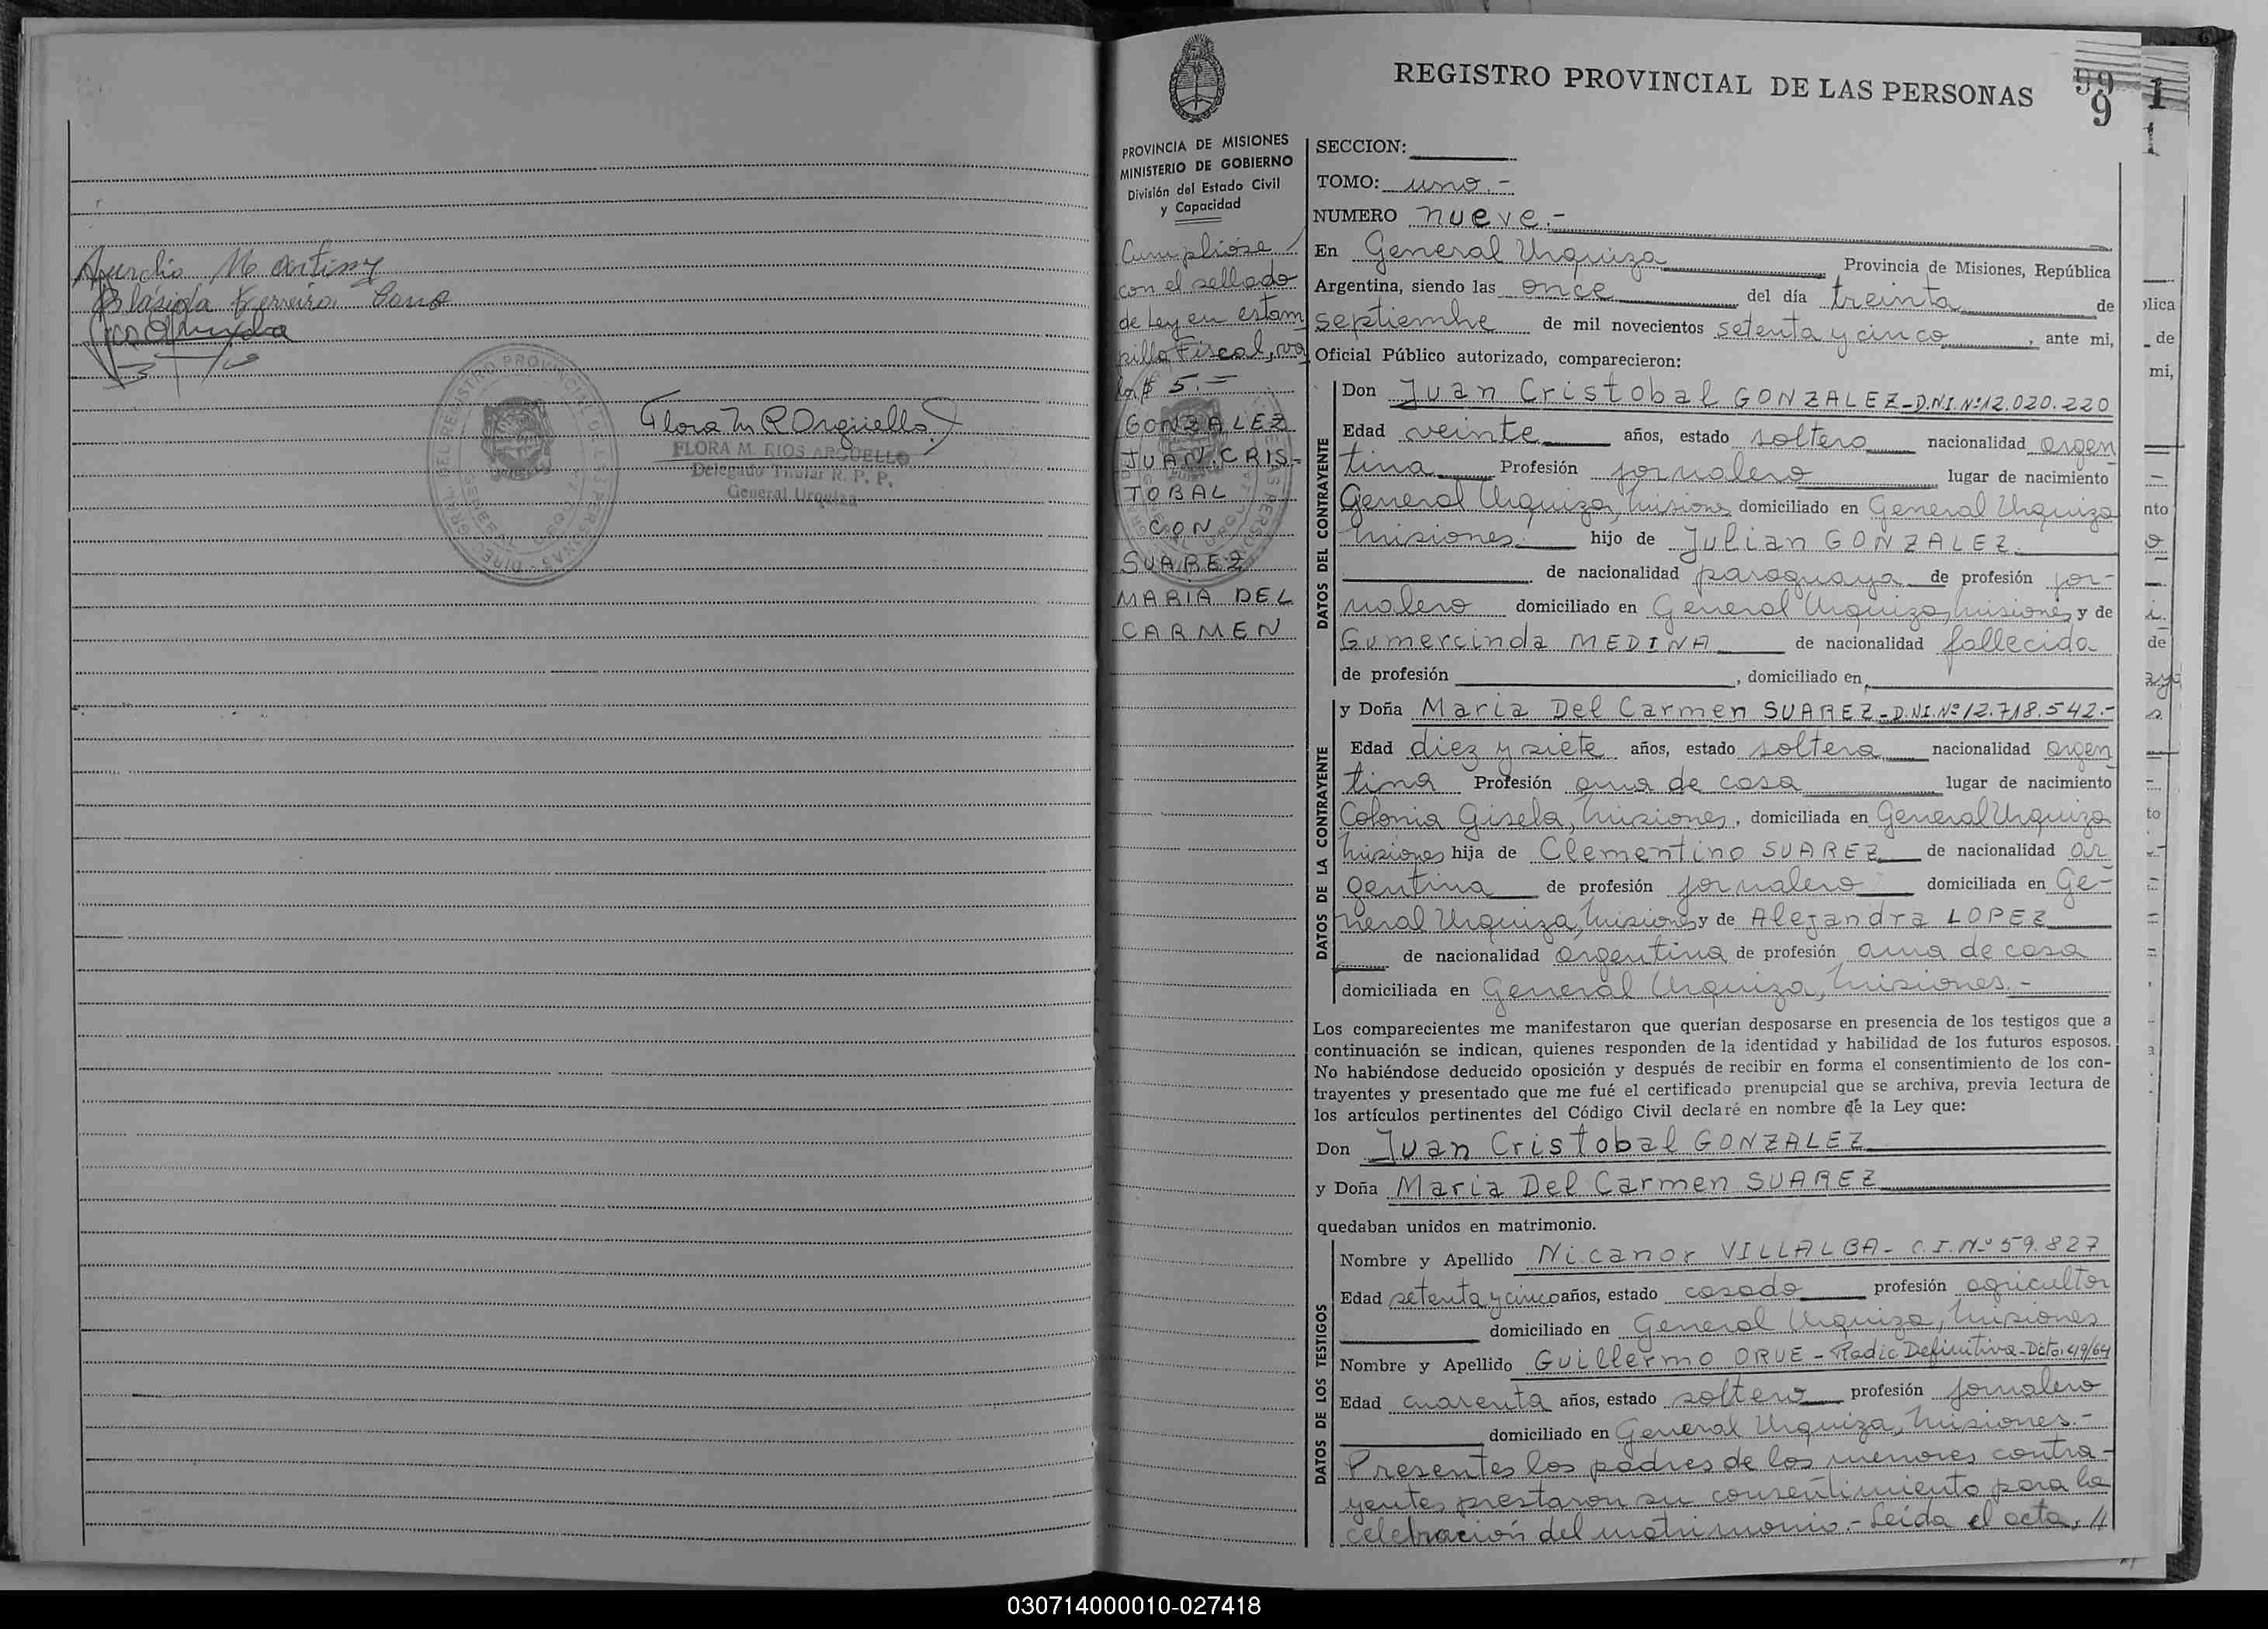 Aurelio Martinez
Plásida Ferreira
Flora M R Orguello
FLORA M. RIOS ARGUELLO
Delegado Titular R. P. P.
General Urquiza
REGISTRO PROVINCIAL DE LAS PERSONAS
99
9
PROVINCIA DE MISIONES
MINISTERIO DE GOBIERNO
División del Estado Civil
y Capacidad
Cumplióse
con el sellado
de Ley en estam
pilla Fiscal, va
lor $ 5.-
GONZALEZ
JUAN CRIS-
TOBAL
CON
SUAREZ
MARIA DEL
CARMEN
SECCION:
TOMO: uno.-
NUMERO nueve.-
En General Urquiza Provincia de Misiones, República
Argentina, siendo las once del día treinta de
septiembre de mil novecientos setenta y cinco, ante mi,
Oficial Público autorizado, comparecieron:
DATOS DEL CONTRAYENTE
Don Juan Cristobal GONZALEZ-D.N.I.Nº12.020.220
Edad veinte años, estado soltero nacionalidad argen
tina Profesión jornalero lugar de nacimiento
General Urquiza, Misiones domiciliado en General Urquiza
Misiones hijo de Julian GONZALEZ
de nacionalidad paraguaya de profesión jor-
nalero domiciliado en General Urquiza, Misiones y de
Gumercinda MEDINA de nacionalidad fallecida
de profesión , domiciliado en
DATOS DE LA CONTRAYENTE
y Doña Maria Del Carmen SUAREZ-D.NI.Nº12.718.542.-
Edad diez y siete años, estado soltera nacionalidad argen
tina Profesión ama de casa lugar de nacimiento
Colonia Gisela, Misiones, domiciliada en General Urquiza
Misiones hija de Clementino SUAREZ de nacionalidad ar
gentina de profesión jornalero domiciliada en Ge-
neral Urquiza, Misiones y de Alejandra LOPEZ
de nacionalidad argentina de profesión ama de casa
domiciliada en General Urquiza, Misiones.-
Los comparecientes me manifestaron que querían desposarse en presencia de los testigos que a
continuación se indican, quienes responden de la identidad y habilidad de los futuros esposos.
No habiéndose deducido oposición y después de recibir en forma el consentimiento de los con-
trayentes y presentado que me fué el certificado prenupcial que se archiva, previa lectura de
los artículos pertinentes del Código Civil declaré en nombre de la Ley que:
Don Juan Cristobal GONZALEZ
y Doña Maria Del Carmen SUAREZ
quedaban unidos en matrimonio.
DATOS DE LOS TESTIGOS
Nombre y Apellido Nicanor VILLALBA- C.I.Nº59.827
Edad setenta y cinco años, estado casado profesión agricultor
domiciliado en General Urquiza, Misiones
Nombre y Apellido Guillermo ORUE-Radic Definitiva-Dcto.49/64
Edad cuarenta años, estado soltero profesión jornalero
domiciliado en General Urquiza, Misiones.-
Presentes los padres de los menores contra-
yentes prestaron su consentimiento para la
celebración del matrimonio.- Leída el acta, //
030714000010-027418